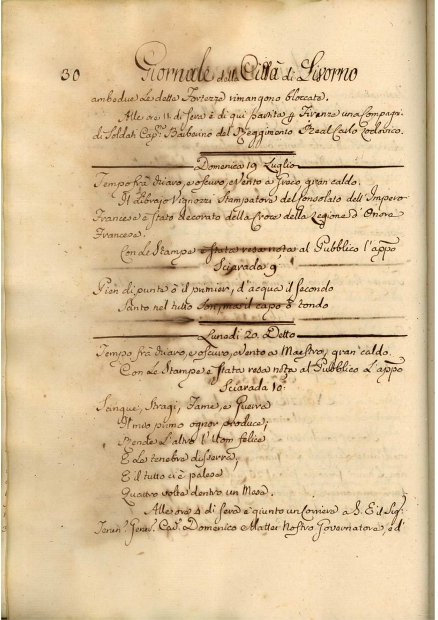 30 Giornale della Città di Livorno
ambedue le dette Fortezze rimangono bloccate.
Alle ore 11 di sera è di quì partita p Firenze una Compagn.
di Soldati Cap.º Barberino del Reggimento Real Carlo Lodovico.
Domenica 19 Luglio
Tempo frà chiaro, e oscuro, e vento a Greco, gran caldo.
Il Librajo Vignozzi Stampatore del Consolato dell'Impero
Francese è stato decorato della Croce della Legione d'Onore
Francese.
Con le Stampe è stata resa nota al Pubblico l'app.º
Sciarada 9
Pien di punte è il primier, d'acqua il secondo
Santo nel tutto il capo è tondo
Lunedì 20. Detto
Tempo frà chiaro, e oscuro, e vento a Maestro, gran caldo.
Con le Stampe è stata resa nota al Pubblico l'app.º
Sciarada 10.
Sangue, Stragi, Fame, e Guerra
Il mio primo ognor produce;
Spende l'altro l'Uom felice
E le tenebre disserra,
E il tutto ci è palese
Quattro volte dentro un Mese.
Alle ore 4 di sera è giunto un Corriere a S. E. il Sig.
Gen. Cav. Domenico Mattei nostro Governatore, e di